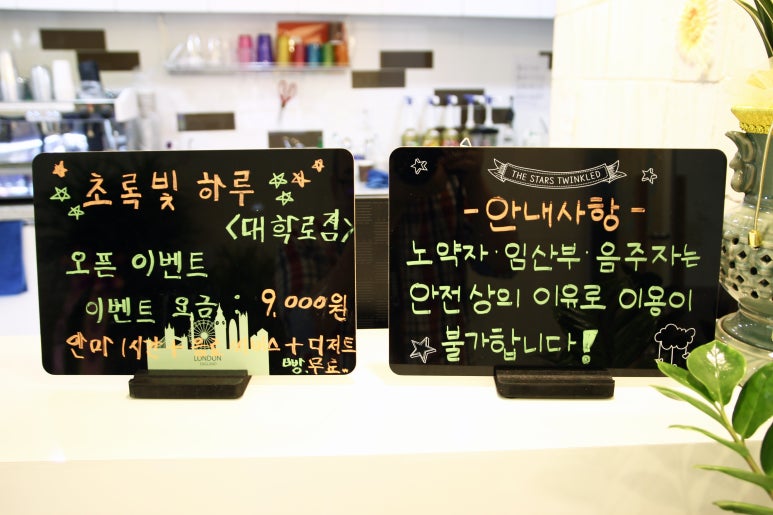 초록빛 하루
<대학로점>
오픈 이벤트
이벤트 요금 : 9,000원
안마 1시간 + + 디저트
빵.무료..
LONDON
ENGLAND
THE STARS TWINKLED
- 안내사항 -
노약자·임산부·음주자는
안전상의 이유로 이용이
불가합니다!